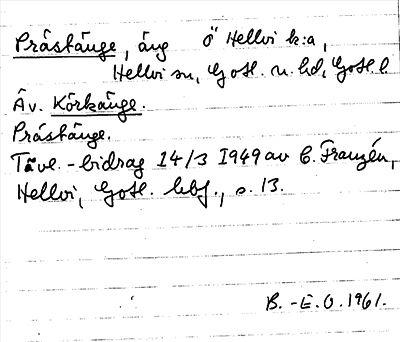 Prästänge, äng Ö Hellvi k:a,
Hellvi sn, Gotl. n. hd, Gotl. l.
Äv. Körkänge.
Prästänge.
Tävl.-bidrag 14/3 1949 av C. Franzén,
Hellvi, Gotl. hbf., s. 13.
B.-E. O. 1961.